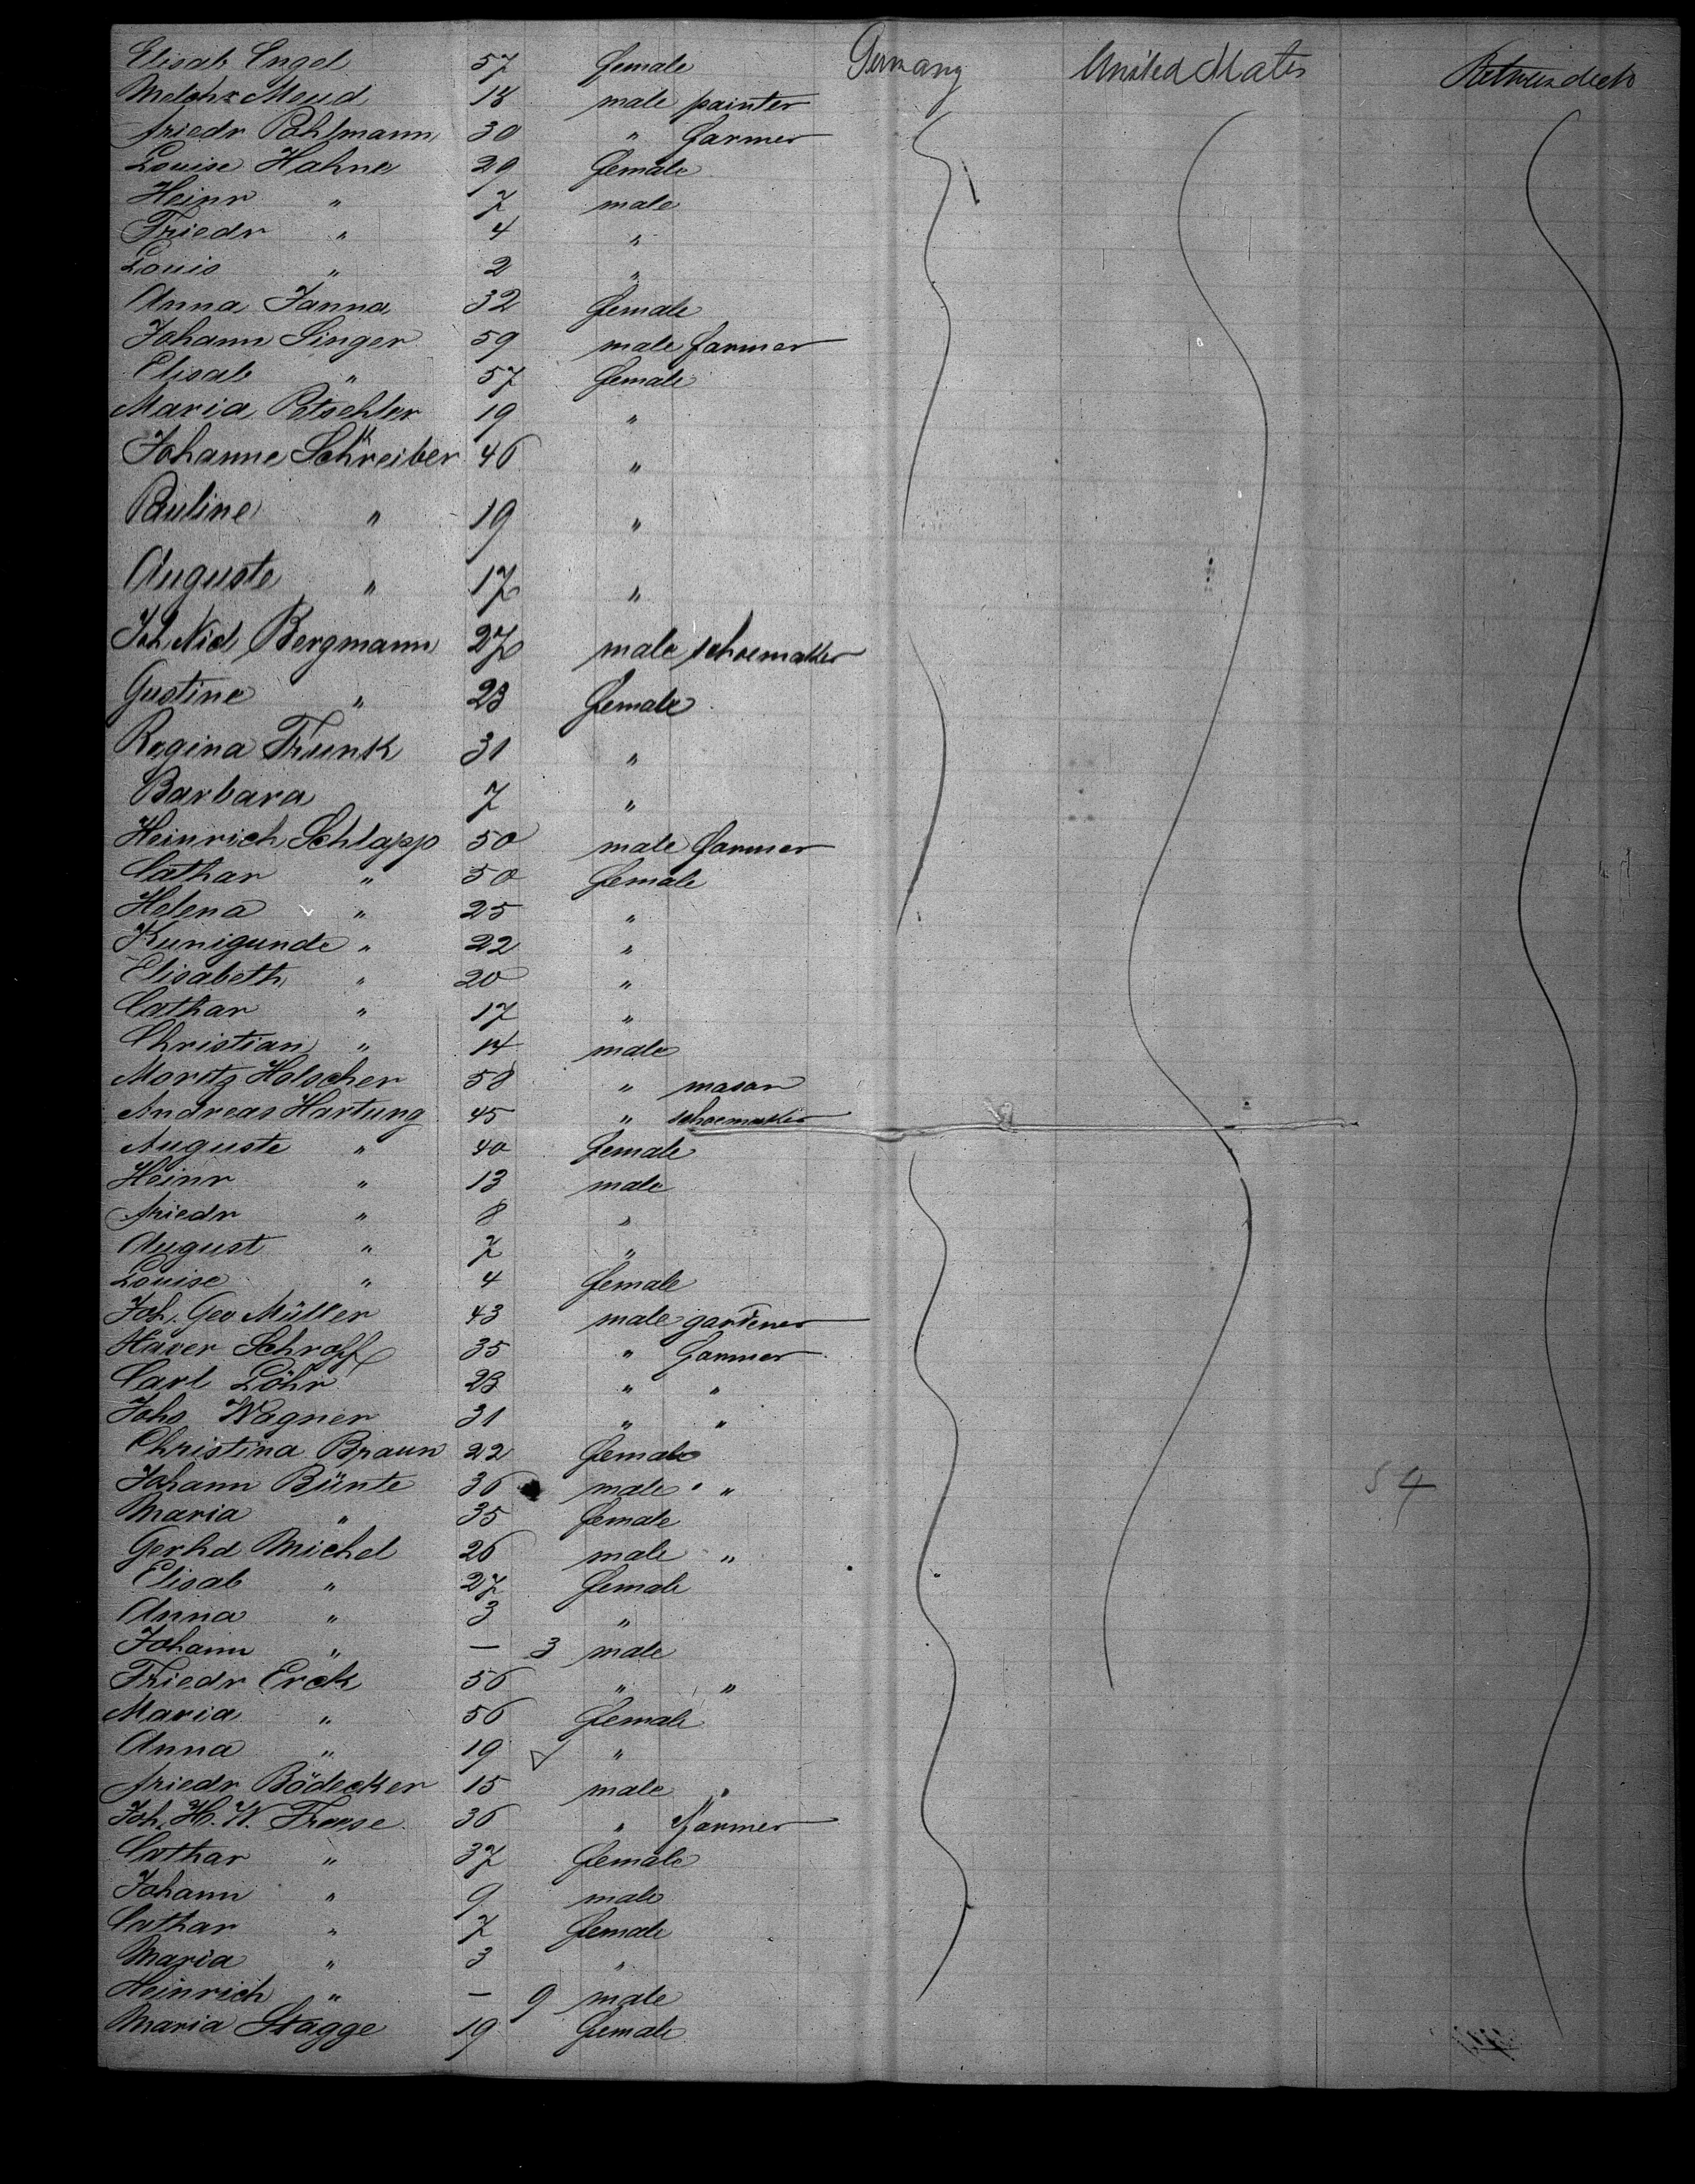 Elisab Engel 57 female Germany United States Betweendeck
Melch Meud 18 male painter
Friedr Pohlmann 30 " farmer
Louise Hahne 29 female
Heinr " 7 male
Friedr " 4 "
Louis " 2 "
Anna Janna 32 female
Johann Singer 59 male farmer
Elisab " 57 female
Maria Petschler 19 "
Johanne Schreiber 46 "
Pauline " 19 "
Auguste " 17 "
Joh. Nicl Bergmann 27 male schoemaker
Gustine " 23 female
Regina Trunk 31 "
Barbara 7 "
Heinrich Schlapp 50 male farmer
Cathar " 50 female
Helena " 25 "
Kunigunde " 22 "
Elisabeth " 20 "
Cathar " 17 "
Christian " 14 male
Moritz Holscher 58 " mason
Andreas Hartung 45 " schoemaker
Auguste " 40 female
Heinr " 13 male
Friedr " 8 "
August " 7 "
Louise " 4 female
Joh. Geo Müller 43 male gardener
Xaver Schroff 35 " farmer
Carl Löhr 23 " "
Johs Wagner 31 " "
Christina Braun 22 female
Johann Bünte 36 male " "
Maria " 35 female
Gerhd Michel 26 male "
Elisab " 27 female
Anna " 3 "
Johann " — 3 male
Friedr Erck 56 " "
Maria " 56 female
Anna " 19 "
Friedr Bödecker 15 male "
Joh. H. W. Frese 36 " farmer
Cathar " 37 female
Johann " 9 male
Cathar " 7 female
Maria " 3 "
Heinrich " — 9 male
Maria Stagge 19 female
54